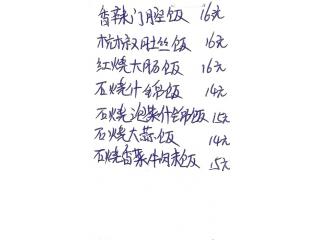 香辣门腔饭 16元
杭椒肚丝饭 16元
红烧大肠饭 16元
石烧什锦饭 14元
石烧泡菜什锦饭 15元
石烧大蒜饭 14元
石烧香菜牛肉末饭 15元